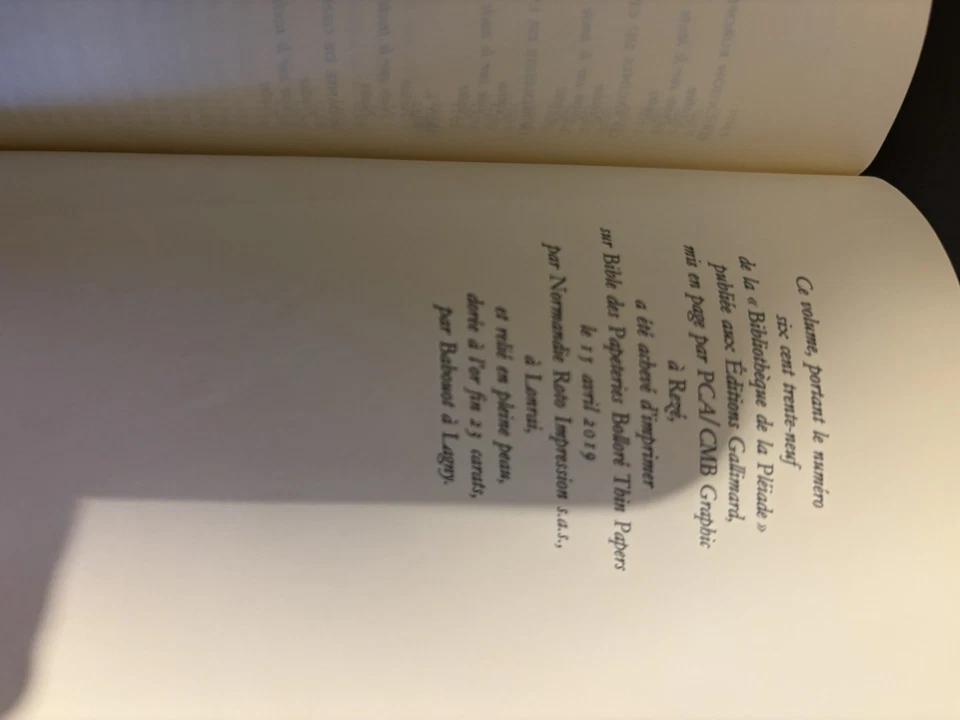 Ce volume, portant le numéro
six cent trente-neuf
de la « Bibliothèque de la Pléiade »
publiée aux Éditions Gallimard,
mis en page par PCA/CMB Graphic
à Rezé,
a été achevé d'imprimer
sur Bible des Papeteries Bolloré Thin Papers
le 15 avril 2019
par Normandie Roto Impression s.a.s.,
à Lonrai,
et relié en pleine peau,
dorée à l'or fin 23 carats,
par Babouot à Lagny.